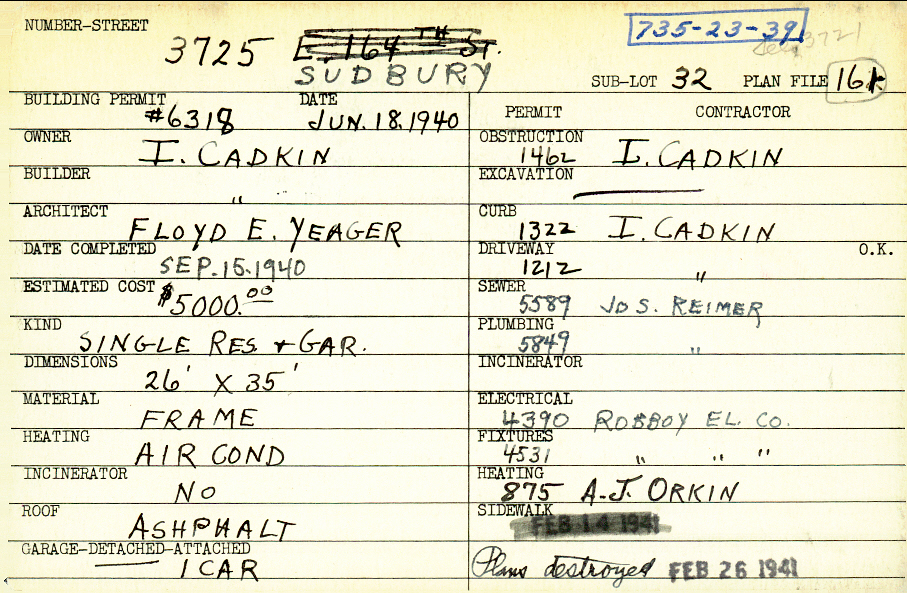 NUMBER-STREET
3725 E. 164TH ST. 735-23-39
SUDBURY
SUB-LOT 32 PLAN FILE 161
BUILDING PERMIT #6318 DATE JUN. 18. 1940
OWNER I. CADKIN
BUILDER "
ARCHITECT FLOYD E. YEAGER
DATE COMPLETED SEP. 15. 1940
ESTIMATED COST $5000.00
KIND SINGLE RES. + GAR.
DIMENSIONS 26' X 35'
MATERIAL FRAME
HEATING AIR COND
INCINERATOR NO
ROOF ASHPHALT
GARAGE-DETACHED-ATTACHED 1 CAR
PERMIT CONTRACTOR
OBSTRUCTION 1462 I. CADKIN
EXCAVATION
CURB 1322 I. CADKIN
DRIVEWAY 1212 " O.K.
SEWER 5589 JOS. REIMER
PLUMBING 5849 "
INCINERATOR
ELECTRICAL 4390 ROBBOY EL. CO.
FIXTURES 4531 " " "
HEATING 875 A.J. ORKIN
SIDEWALK FEB 14 1941
Plans destroyed FEB 26 1941